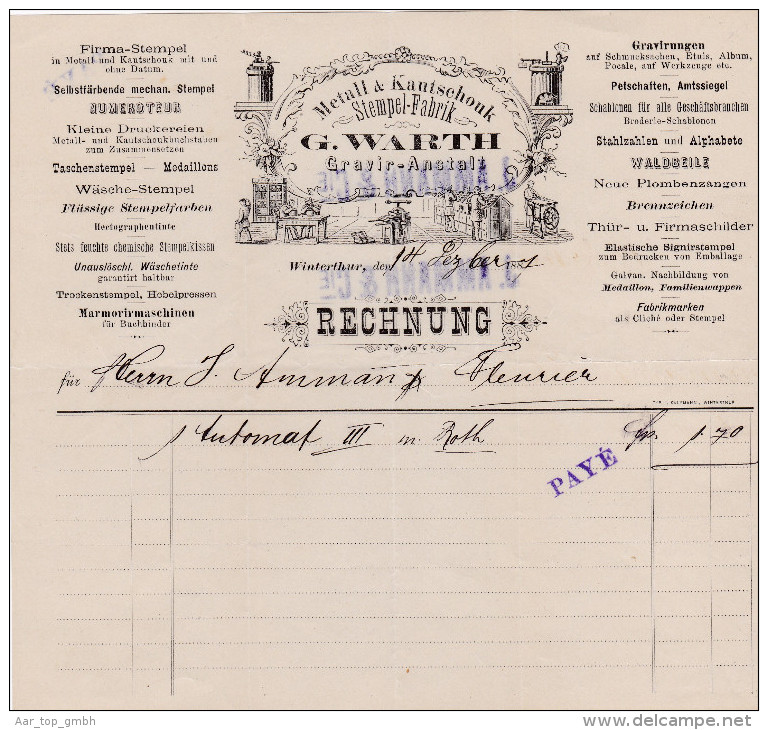 Firma-Stempel
in Metall und Kautschouk mit und
ohne Datum.
Selbstfärbende mechan. Stempel
NUMEROTEUR
Kleine Druckereien
Metall- und Kautschoukbuchstaben
zum Zusammensetzen
Taschenstempel — Medaillons
Wäsche-Stempel
Flüssige Stempelfarben
Hectographentinte
Stets feuchte chemische Stempelkissen
Unauslöschl. Wäschetinte
garantirt haltbar
Trockenstempel, Hobelpressen
Marmorirmaschinen
für Buchbinder
Metall & Kautschouk
Stempel-Fabrik
G. WARTH
Gravir-Anstalt
J. AMMANN & CIE
Winterthur, den 14 Dezber 188
J. AMMANN & CIE
RECHNUNG
Gravirungen
auf Schmucksachen, Etuis, Album,
Pocale, auf Werkzeuge etc.
Petschaften, Amtssiegel
Schablonen für alle Geschäftsbranchen
Broderie-Schablonen
Stahlzahlen und Alphabete
WALDBEILE
Neue Plombenzangen
Brennzeichen
Thür- u. Firmaschilder
Elastische Signirstempel
zum Bedrucken von Emballage
Galvan. Nachbildung von
Medaillon, Familienwappen
Fabrikmarken
als Cliché oder Stempel
für Herrn J. Ammann Fleurier
1 Automat III m. Roth fr. 1.70
PAYÉ
Aar_top_gmbh
delcampe.net